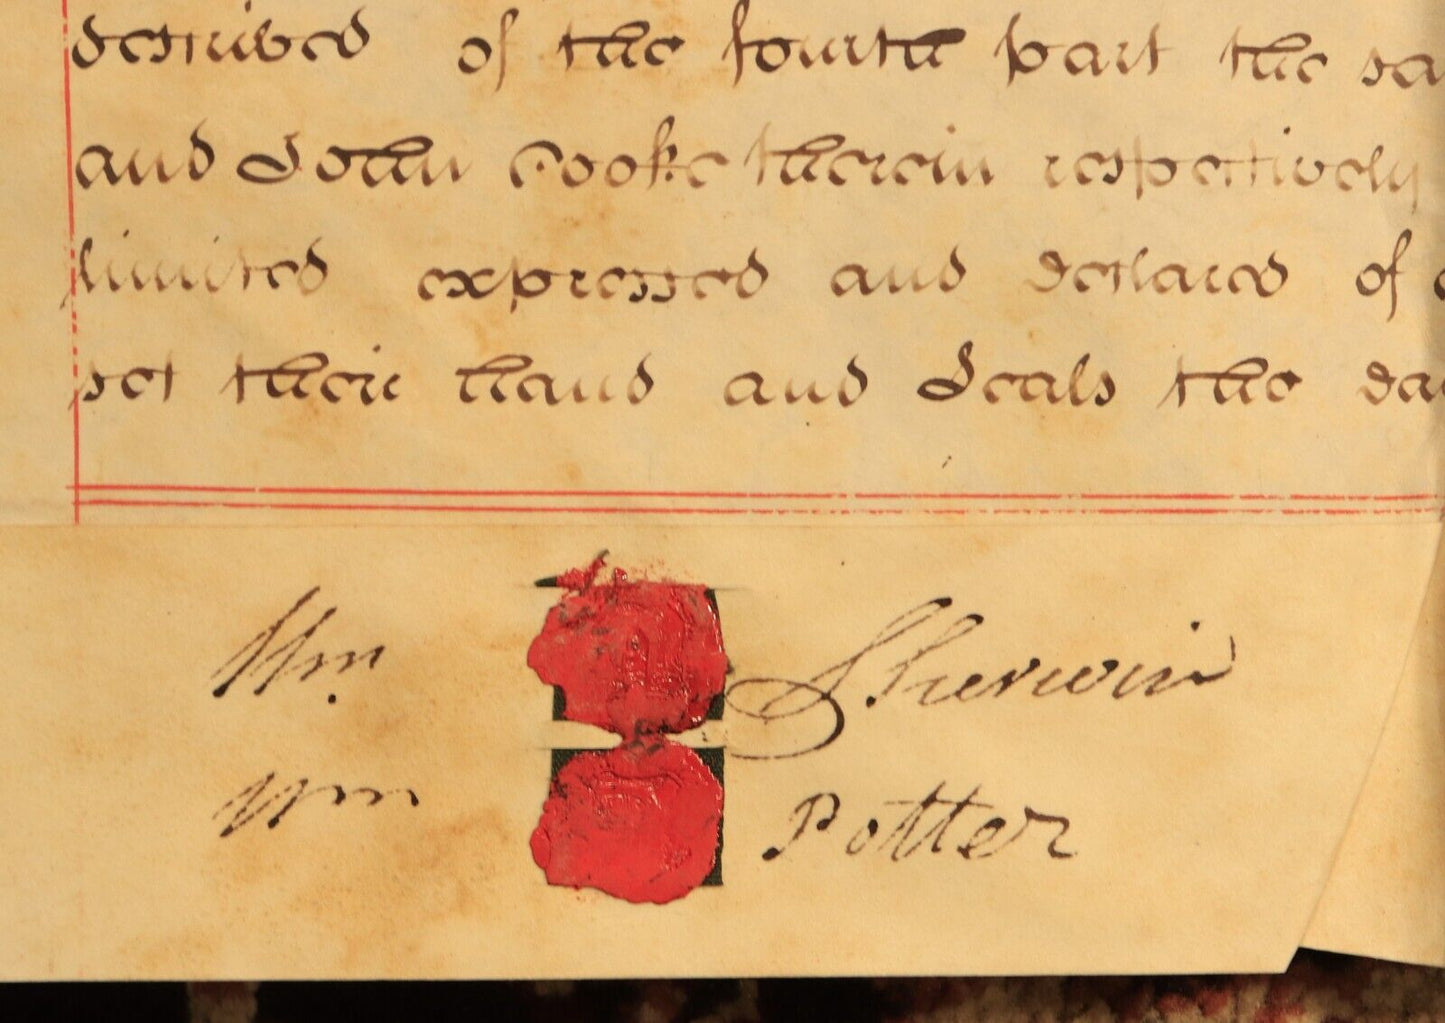 described of the fourth part the sa
and John Cooke therein respectively
limited expressed and declared of
set their hand and Seals the da
Wm Sherwin
Wm Potter